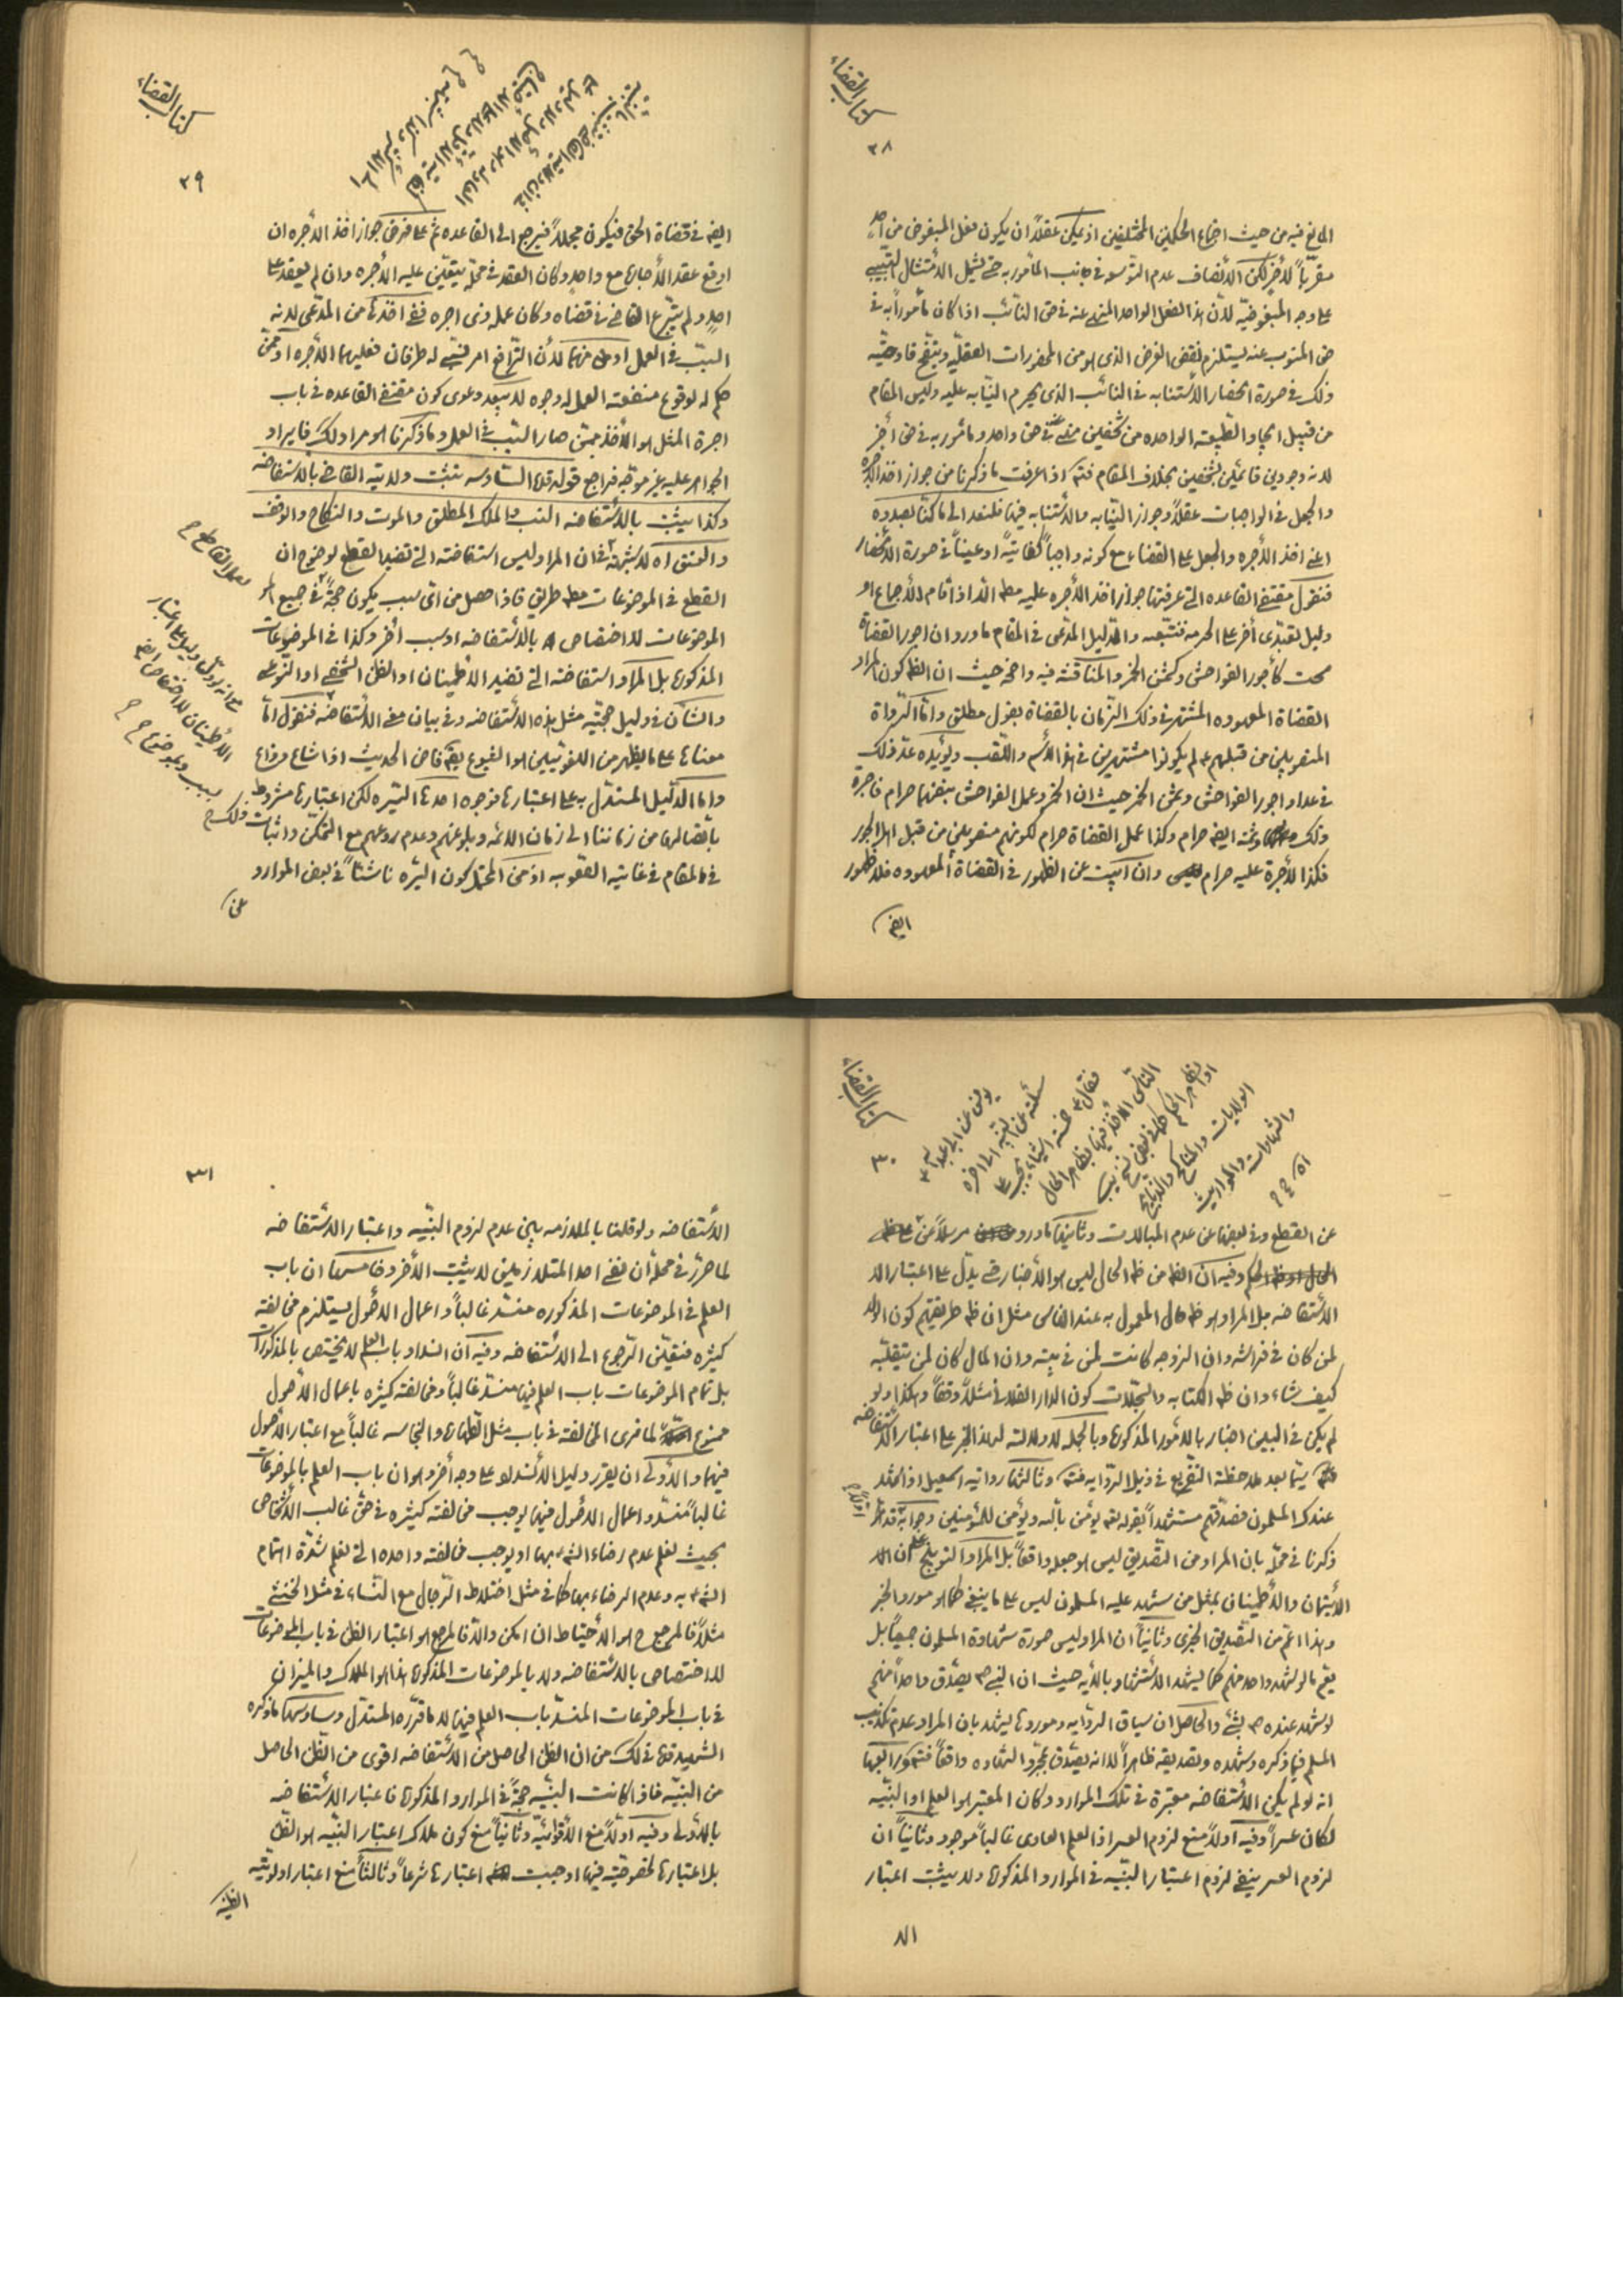 كتاب القضاء
٢٨
المانع فيه من حيث اجتماع الحكمين المختلفين اذ يمكن عقلاً ان يكون فعل المبغوض من احد
مقرّباً لأخر لكن الأنصاف عدم التوسعه في جانب المأمور به حتى يشمل الأمتثال التسبيبى
على وجه المبغوضيّه لأنّ هذا الفعل الواحد المنهى عنه في حق النائب اذا كان مأموراً به في
حق المنوب عنه يستلزم نقض الغرض الذى هو من المحذورات العقليّه ويتضح فادحيّه
ذلك في صورة انحصار الأستنابه في النائب الذى يحرم النيّابه عليه وليس المقام
من قبيل ايجاد الطبيعه الواحده من شخصين منهى عنه في حق واحد ومأمور به في حق أخر
لانه وجودين قائمين بشخصين بخلاف المقام فتم اذا عرفت ما ذكرنا من جواز اخذ الأجره
والجعل في الواجبات عقلاً وجواز النيّابه والأستنابه فيها فلنعد الى ما كنّا بصدده
اعنى اخذ الأجره والجعل على القضاء مع كونه واجباً كفائيّاً او عيناً في صورة الأنحصار
فنقول مقتضى القاعده التى عرفتها جواز اخذ الأجره عليه مطـ الّا اذا قام الأجماع او
دليل تعبّدى أخر على الحرمه فنتّبعه والدليل المدّعى في المقام ما ورد ان اجور القضاة
سحت كأجور الفواحش وكثمن الخمر والمناقشه فيه واضحه حيث ان الظـ كون المراد
القضاة المعهوده المشتهر في ذلك الزمان بالقضاة بقول مطلق وامّا الرّواة
المنصوبين من قبلهم عـ لم يكونوا مشتهرين في هذا الأسم واللقب ويؤيّده عدّ ذلك
في عداد اجور الفواحش وثمن الخمر حيث ان الخمر وعمل الفواحش بنفسها حرام فاجرة
ذلك وثمنه ايضـ حرام وكذا عمل القضاة حرام لكونهم منصوبين من قبل اهل الجور
فكذا الأجرة عليه حرام وان ابيت عن الظهور في القضاة المعهوده فلا ظهور
ايضـ
كتاب القضاء
٢٩
ايضـ في قضاة الحق فيكون مجملاً فيرجع الى القاعده ثم على فرض جواز اخذ الأجره ان
اوقع عقد الأجارة مع واحد وكان العقد في محلّه يتعيّن عليه الأجره وان لم يعقد على
احد ولم يتبرّع القاضى في قضاه وكان عمله ذى اجره ففى اخذها من المدّعى لانه
السبب في العمل او منهما لأن الترافع امر نسبى له طرفان فعليهما الأجره او ممّن
حكم له لوقوع منفعته العمل له وجوه لا يبعد دعوى كون مقتضى القاعده في باب
اجرة المثل هو الأخذ ممّن صار السبب في العمل وما ذكرنا هو مراد فايراد
الجواهر عليه غير موجّه فراجع قوله قده السّادسه تثبت ولاية القاضى بالاستفاضه
وكذا يثبت بالأستفاضه النسب والملك المطلق والموت والنكاح والوقف
والعتق اه لا شبهة في ان المراد ليس استفاضته التى تفيد القطع لوضوح ان
القطع في الموضوعات مطـ طريق فاذا حصل من اىّ سبب يكون حجّة في جميع
الموضوعات لا اختصاص بالأستفاضه او سبب أخر وكذا في الموضوعات
المذكوره بل المراد استفاضته التى تفيد الأطمينان او الظن الشخصى او النّوعى
والشأن في دليل حجّيّه مثل هذه الأستفاضه وفى بيان معنى الأستفاضه فنقول امّا
معناها على ما يظهر من اللغويّين هو الشيوع يقـ فاض الحديث اذا شاع وذاع
وامّا الدّليل المستدل به على اعتبارها فوجوه احدها السّيره لكن اعتبارها مشروط
بأتصالها من زماننا الى زمان الأئمه وبلوغهم وعدم ردعهم مع التمكّن واثبات ذلك
في المقام في غاية الصّعوبه اذ من المحتمل كون السّيره ناشئاً في بعض الموارد
عن
كتاب القضاء
٣٠
يونس عن ابى عبد اللّه عـ
سئلته عن البيّنه الى اخره
فقال عـ خمسة اشياء يجب على
النّاس الأخذ فيها بظاهر الحال
او بظاهر الحكم كما في بعض نسخ يب
الولايات والمناكح والذبايح
والشهادات والمواريث
اه
عن القطع وفى بعضها عن عدم المبالات وثانيها ما ورد مرسلاً عن
وفيه ان الظـ من ظـ الحال ليس هو الأخبار حتى يدلّ على اعتبار
الأستفاضه بل المراد هو ظـ حال المعمول به عند الناس مثل ان ظـ طريقتهم كون الولد
لمن كان في فراشه وان الزوجه كانت لمن في بيته وان المال كان لمن يتقلّبه
كيف شاء وان ظـ الكتابه والسّجلات كون الدار الفلانى مثلاً وقفاً وهكذا ولو
لم يكن في البين اخبار بالأمور المذكوره وبالجمله لا دلالته لهذا الخبر على اعتبار الأستفاضه
سيّما بعد ملاحظة التفريع في ذيل الرّوايه فتم وثالثها رواية اسمعيل اذا شهد
عندك المسلمون فصدّقهم مستشهداً بقوله تعـ يؤمن بأللّه ويؤمن للمؤمنين وجوابه قد
ذكرنا في محلّه بان المراد من التّصديق ليس هو جعله واقعاً بل المراد التوبيخ على ان
الأيتمان والأطمينان بمثل من شهد عليه المسلمون ليس على ما ينبغى كما هو مورد الخبر
وهذا اعمّ من التّصديق الخبرى وثانياً ان المراد ليس صورة شهادة المسلمون جميعاً بل
يعمّ ما لو شهد واحد منهم كما يشهد الأستشهاد بالأيه حيث ان النبى صـ يصدّق واحداً منهم
لو شهد عنده صـ بشئ والحاصل ان سياق الرّوايه وموردها يشهد بان المراد عدم تكذيب
المسلم فيما ذكره وشهده وتصديقه ظاهراً لا انه يصدّق بمجرّد الشهاده واقعاً فتم ورابعها
انه لو لم يكن الأستفاضه معتبرة في تلك الموارد وكان المعتبر هو العلم او البيّنه
لكان عسراً وفيه اولاً منع لزوم العسر اذ العلم العادى غالباً موجود وثانياً ان
لزوم العسر ينفى لزوم اعتبار البيّنه في الموارد المذكوره ولا يثبت اعتبار
الا
٣١
الأستفاضه ولو قلنا بالملازمه بين عدم لزوم البيّنه واعتبار الأستفاضه
لما حرّر في محلّه أن نفى احد المتلازمين لا يثبت الأخر وخامسها ان باب
العلم في الموضوعات المذكوره منسدّ غالباً واعمال الأصول يستلزم مخالفته
كثيره فتعيّن الرّجوع الى الأستفاضه وفيه ان انسداد باب العلم لا يختص بالمذكورات
بل تمام الموضوعات باب العلم فيها منسدّ غالباً ومخالفته كثيره باعمال الأصول
ممنوع لما نرى المخالفته في باب مثل الطهارة والنجاسه غالباً مع اعتبار الأصول
فيهما والأولى ان يقرّر دليل الأنسداد على وجه أخر وهو ان باب العلم بالموضوعات
غالباً منسدّ واعمال الأصول فيها يوجب مخالفته كثيره في حقّ غالب الأشخاص
بحيث نعلم عدم رضاء الشّـ بها او يوجب مخالفته واحده التى نعلم شدّة اهتمام
الشّـ به وعدم الرضاء بها كما في مثل اختلاط الرّجال مع النّساء في مثل الخنثى
مثلاً فالمرجع ح هو الأحتياط ان امكن والّا فالمرجع هو اعتبار الظن في باب الموضوعات
لا اختصاص بالأستفاضه ولا بالموضوعات المذكوره هذا هو الملاك والميزان
في باب الموضوعات المنسدّ باب العلم فيها لا ما قرّره المستدل وسادسها ما ذكره
الشهيد قده في لك من ان الظن الحاصل من الأستفاضه اقوى من الظن الحاصل
من البيّنه فاذا كانت البيّنه حجّة في الموارد المذكوره فاعتبار الأستفاضه
بالأولى وفيه اولاً منع الأقوائيّه وثانياً منع كون ملاك اعتبار البيّنه هو الظن
بل اعتبارها لخصوصيّة فيها اوجبت اعتبارها شرعاً وثالثاً منع اعتبار اولويّته
الظنيّه